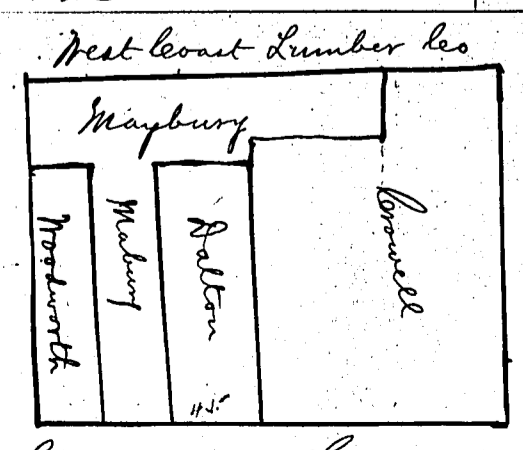 West Coast Lumber Co
Maybury
Woodworth
Mabury
Dalton
Crowell